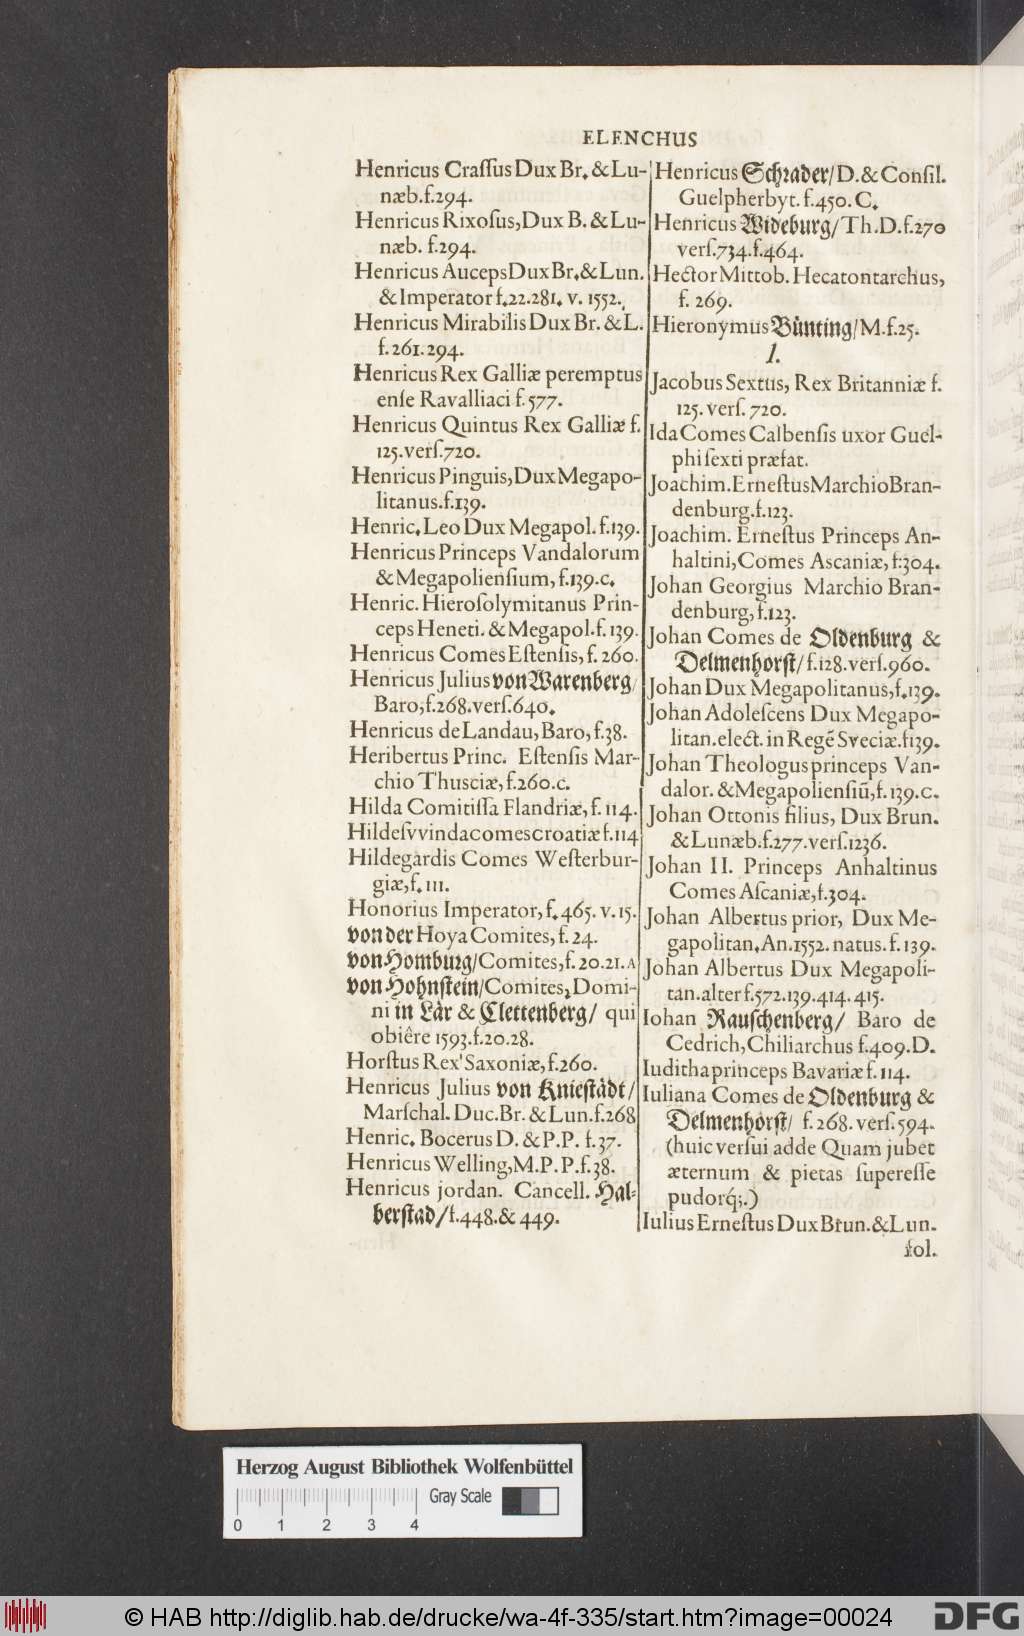 ELENCHUS
Henricus Craſſus Dux Br. & Lu-
næb.f.294.
Henricus Rixoſus, Dux B. & Lu-
næb. f.294.
Henricus Auceps Dux Br. & Lun.
& Imperator f.22.281. v. 1552.
Henricus Mirabilis Dux Br. & L.
f.261.294.
Henricus Rex Galliæ peremptus
enſe Ravalliaci f.577.
Henricus Quintus Rex Galliæ f.
125.verſ.720.
Henricus Pinguis, Dux Megapo-
litanus.f.139.
Henric. Leo Dux Megapol. f.139.
Henricus Princeps Vandalorum
& Megapolienſium, f.139.c.
Henric. Hieroſolymitanus Prin-
ceps Heneti. & Megapol. f. 139.
Henricus Comes Eſtenſis, f. 260.
Henricus Julius von Warenberg/
Baro, f.268.verſ.640.
Henricus de Landau, Baro, f.38.
Heribertus Princ. Eſtenſis Mar-
chio Thuſciæ, f.260.c.
Hilda Comitiſſa Flandriæ, f. 114.
Hildeſvvinda comes croatiæ f.114
Hildegardis Comes Weſterbur-
giæ, f. 111.
Honorius Imperator, f. 465. v. 15.
von der Hoya Comites, f. 24.
von Homburg/ Comites, f. 20.21.A
von Hohnſtein/ Comites, Domi-
ni in Lår & Clettenberg/ qui
obiêre 1593.f.20.28.
Horſtus Rex Saxoniæ, f.260.
Henricus Julius von Knieſtådt/
Marſchal. Duc. Br. & Lun. f.268
Henric. Bocerus D. & P.P. f.37.
Henricus Welling, M.P.P.f.38.
Henricus jordan. Cancell. Hal-
berſtad/ f.448. & 449.
Henricus Schrader/ D. & Conſil.
Guelpherbyt. f.450. C.
Henricus Wideburg/ Th. D. f.270
verſ.734.f.464.
Hector Mittob. Hecatontarchus,
f. 269.
Hieronymus Bůnting/ M.f.25.
I.
Jacobus Sextus, Rex Britanniæ f.
125. verſ. 720.
Ida Comes Calbenſis uxor Guel-
phi ſexti præfat.
Joachim. Erneſtus Marchio Bran-
denburg.f.123.
Joachim. Erneſtus Princeps An-
haltini, Comes Aſcaniæ, f:304.
Johan Georgius Marchio Bran-
denburg, f.123.
Johan Comes de Oldenburg &
Delmenhorſt/ f.128.verſ.960.
Johan Dux Megapolitanus, f.139.
Johan Adoleſcens Dux Megapo-
litan. elect. in Regē Sveciæ.f139.
Johan Theologus princeps Van-
dalor. & Megapolienſiū, f. 139.c.
Johan Ottonis filius, Dux Brun.
& Lunæb.f.277.verſ.1236.
Johan II. Princeps Anhaltinus
Comes Aſcaniæ, f.304.
Johan Albertus prior, Dux Me-
gapolitan. An.1552. natus. f. 139.
Johan Albertus Dux Megapoli-
tan. alter f.572.139.414. 415.
Iohan Rauſchenberg/ Baro de
Cedrich, Chiliarchus f.409.D.
Iuditha princeps Bavariæ f. 114.
Iuliana Comes de Oldenburg &
Delmenhorſt/ f. 268. verſ. 594.
(huic verſui adde Quam jubet
æternum & pietas ſupereſſe
pudorq́;.)
Iulius Erneſtus Dux Brun. & Lun.
fol.
Herzog August Bibliothek Wolfenbüttel
Gray Scale
0 1 2 3 4
© HAB http://diglib.hab.de/drucke/wa-4f-335/start.htm?image=00024
DFG